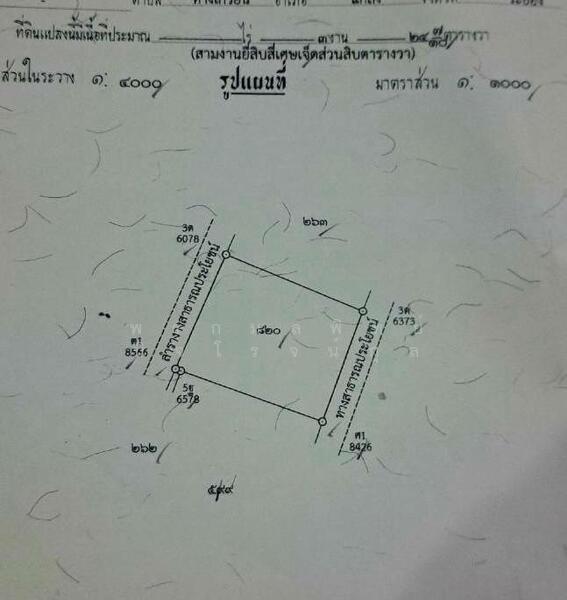 ที่ดินแปลงนี้มีเนื้อที่ประมาณ ไร่ ๓ งาน ๒๔ ๗/๑๐ ตารางวา
(สามงานยี่สิบสี่เศษเจ็ดส่วนสิบตารางวา)
ส่วนในระวาง ๑: ๔๐๐๐ รูปแผนที่ มาตราส่วน ๑: ๑๐๐๐
๒๖๓
3ค
6078
ลำรางสาธารณประโยชน์
๘๒๐
3ค
6373
ทางสาธารณประโยชน์
ศ1
8566
5ฐ
6578
ศ1
8426
๒๖๒
๕๙๙